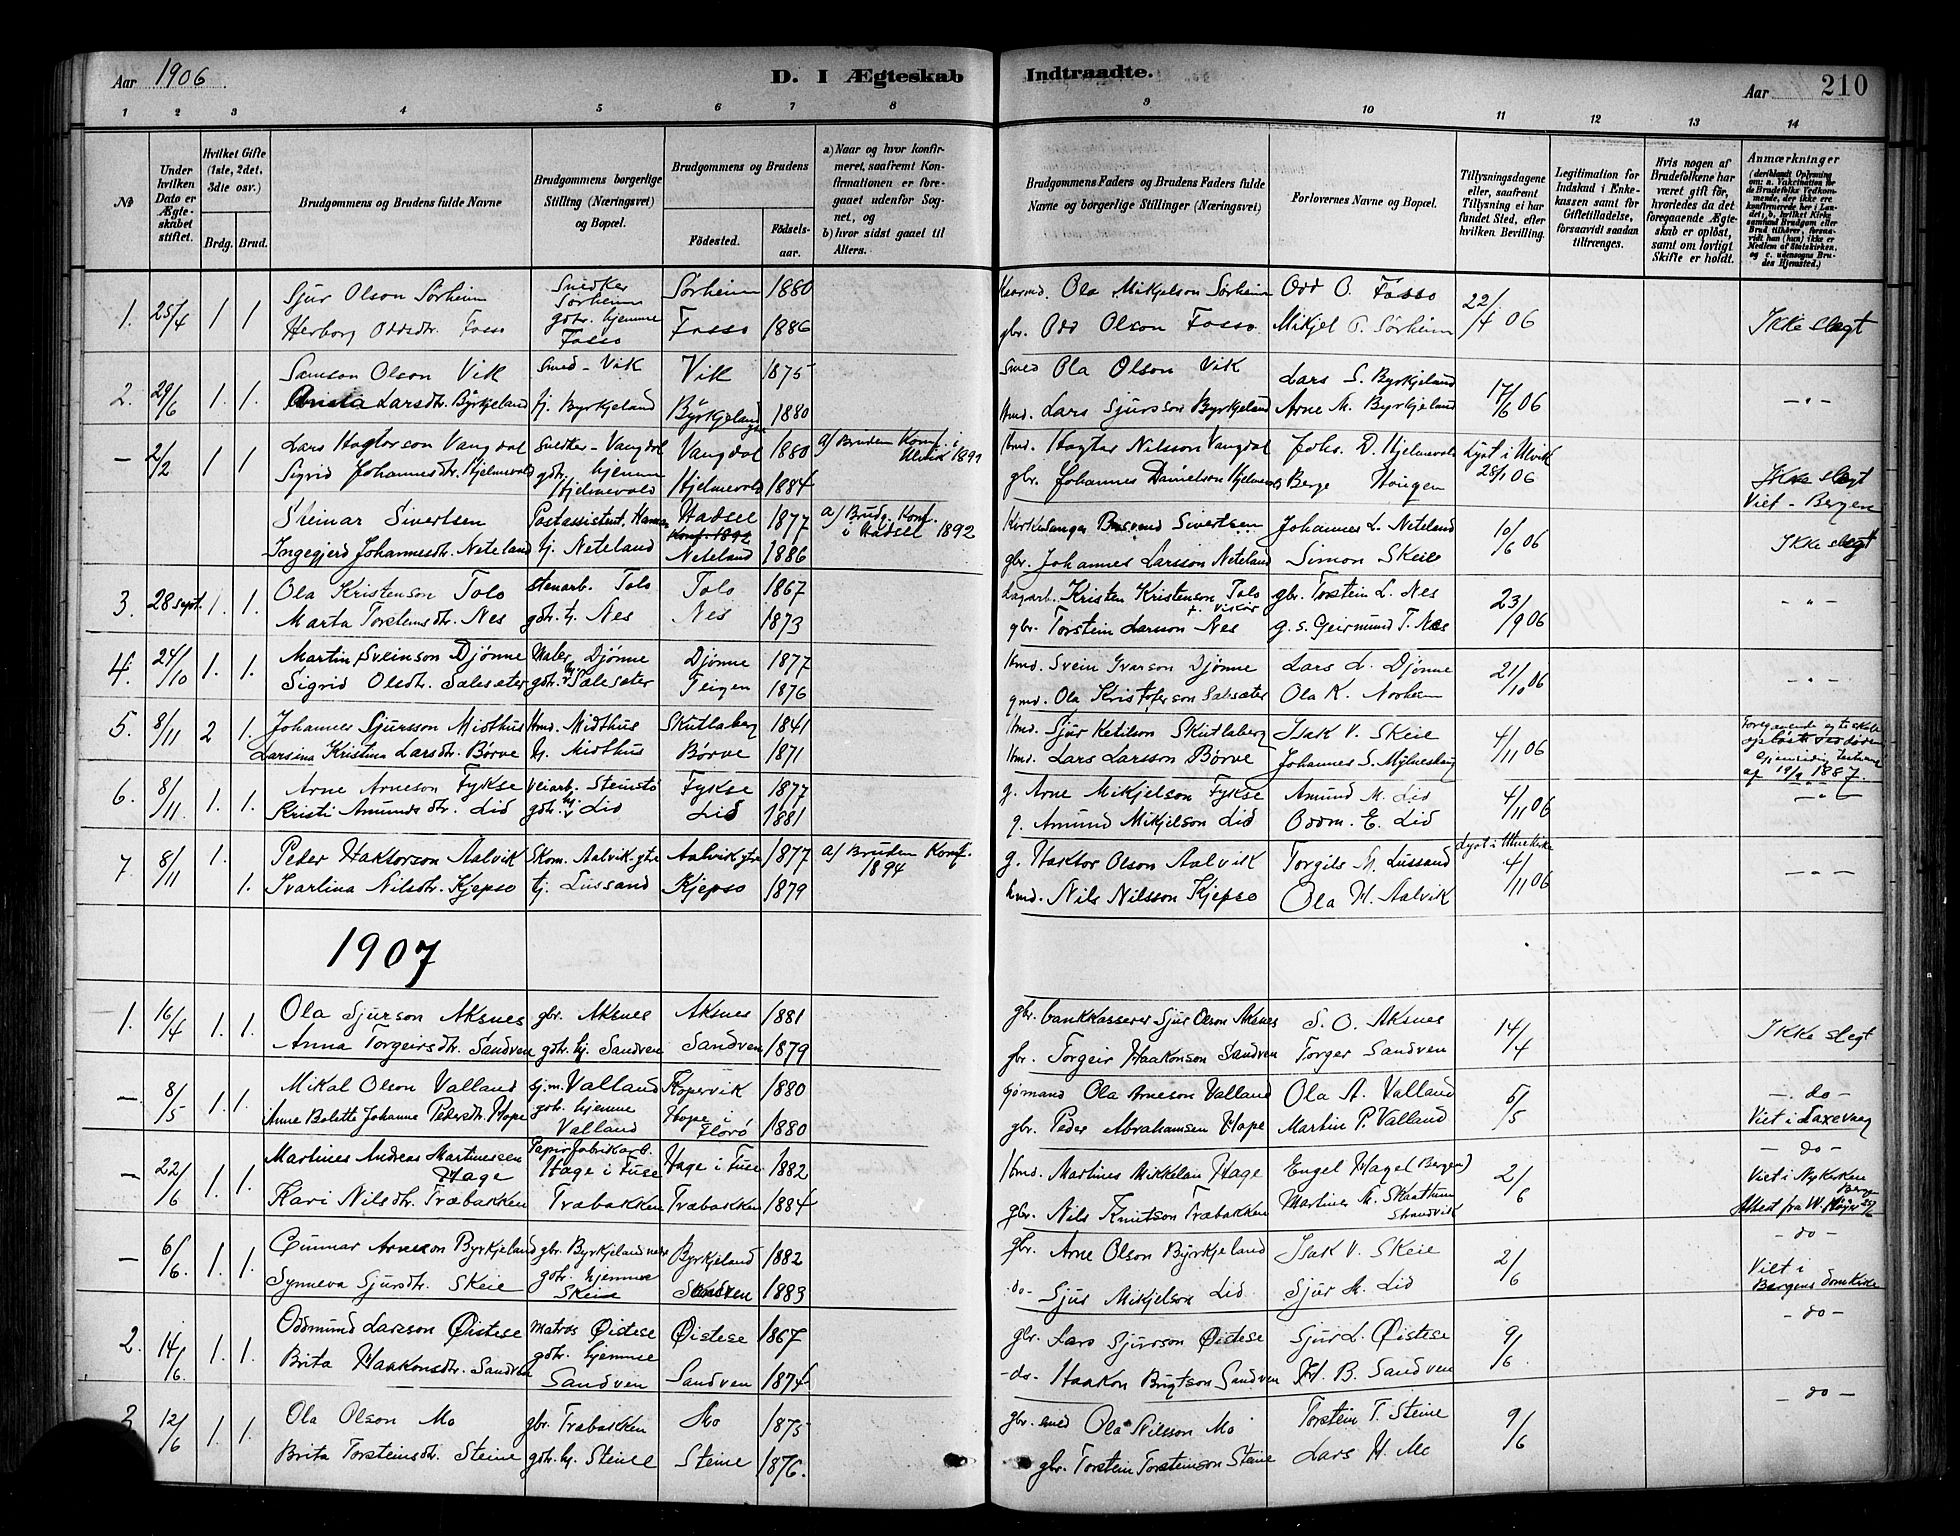 Aar 1906
D. I Ægteskab Indtraadte.
Aar 210
1 2 3 4 5 6 7 8 9 10 11 12 13 14
No
Under hvilken Dato er Ægteskabet stiftet.
Hvilket Gifte (1ste, 2det, 3die osv.)
Brdg. Brud.
Brudgommens og Brudens fulde Navne
Brudgommens borgerlige Stilling (Næringsvei) og Bopæl.
Brudgommens og Brudens
Födested.
Födselsaar.
a) Naar og hvor konfirmeret, saafremt Konfirmationen er foregaaet udenfor Sognet, og
b) hvor sidst gaaet til Alters.
Brudgommens Faders og Brudens Faders fulde Navne og borgerlige Stillinger (Næringsvei)
Forlovernes Navne og Bopæl.
Tillysningsdagene eller, saafremt Tillysning ei har fundet Sted, efter hvilken Bevilling.
Legitimation for Indskud i Enkekassen samt for Giftetilladelse, forsaavidt saadan tiltrænges.
Hvis nogen af Brudefolkene har været gift för, hvorledes da det foregaaende Ægteskab er oplöst, samt om lovligt Skifte er holdt.
Anmærkninger
1. 25/4 1 1 Sjur Olson Sørheim Snedker Sørheim Sørheim 1880 Ola Mikjelson Sørheim Odd O. Fosso 22/4 06
Herborg Oddsdtr. Fosso gdtr. hjemme Fosso Fosso 1886 gbr. Odd Olson Fosso. Mikjel O. Sørheim Ikke slegt
2. 29/6 1. 1. Samson Olson Vik Smed - Vik Vik 1875 Smed Ola Olson Vik Lars S. Byrkjeland 17/6 06
Larsdtr. Byrkjeland hj. Byrkjeland Byrkjeland 1880 Hmd. Lars Sjursson Byrkjeland Arne M. Byrkjeland - " -
- 2/2 1 1 Lars Hagtorson Vangdal Snedker - Vangdal Vangdal 1880 a) Bruden Konf. i Ulvik 1899 Hmd. Hagtor Nilsson Vangdal Johs. D. Hjelmevold Lyst i Ulvik
Sigrid Johannesdtr. Hjelmevold gdtr. hjemme Hjelmevold Hjelmevold 1884 gbr. Johannes Danielson Hjelmevold Berge Hougen 28/1 06 Ikke slegt
Viet - Bergen
Sivertsen Postassistent. Hadsel 1877 a) Brudg. Konf. i Hadsel 1892 Kirkesanger Sivertsen Johannes L. Neteland 10/6 06
Konf. 1892
Ingegjerd Johannesdtr. Neteland hj. Neteland Neteland 1886 gbr. Johannes Larsson Neteland Simon Skeie Ikke slegt
3. 28 sept. 1. 1. Ola Kristenson Tolo stenarb. Tolo Tolo 1867 Kristen Kristenson Tolo gbr. Torstein L. Nes 23/9 06 - " -
Marta Torsteinsdtr. Nes gdtr. hj. Nes Nes 1873 gbr. Torstein Larsson Nes g. s. Geirmund T. Nes
4. 24/10 1. 1. Martin Sveinson Djønne Maler, Djønne Djønne 1877 Hmd. Svein Ivarson Djønne Lars L. Djønne 21/10 06 - " -
Sigrid Olsdtr. Salesæter gdtr. hj. Salesæter Teigen 1876 Ola Kristoferson Salesæter Ola K. Norheim
5. 8/11 2 1. Johannes Sjursson Midthus Hmd. Midthus Skutlaberg 1841 Hmd. Sjur Ketilson Skutlaberg Isak V. Skeie 4/11 06
Larsina Kristina Larsdtr. Børve hj. Midthus Børve 1871 Hmd. Lars Larsson Børve Johannes S. af 19/9 1887.
6. 8/11 1. 1. Arne Arneson Fykse Veiarb. Steinstø Fykse 1877 g. Arne Mikjelson Fykse Amund M. Lid 4/11 06 - " -
Kristi Amundsdtr. Lid gdtr. hj. Lid Lid 1881 g. Amund Mikjelson Lid Oddm. E. Lid
7. 8/11 1. Peder Haktorson Aalvik Skom. Aalvik ytre Aalvik ytre 1877 a) Bruden Konf. 1894 g. Haktor Olson Aalvik Torgils M. Lussand 4/11 06
1. Ivarlina Nilsdtr. Kjepso tj. Lussand Kjepso 1879 hmd. Nils Nilsson Kjepso Ola H. Aalvik - " -
1907
1. 16/4 1. 1. Ola Sjurson Aksnes gbr. Aksnes Aksnes 1881 gbr. bankkasserer Sjur Olson Aksnes S. O. Aksnes 14/4
Anna Torgeirsdtr. Sandven gdtr. hj. Sandven Sandven 1879 gbr. Torgeir Haakonson Sandven Torger Sandven Ikke slegt
- 8/5 1. 1. Mikal Olson Valland sj.m. Valland Kopervik 1880 sjømand Ola Arneson Valland Ola A. Valland 5/5 - do -
Anne Bolette Johanne Pedersdtr. Hope gdtr. hjemme Valland Hope i Florø 1880 gbr. Peder Abrahamsen Hope Martin P. Valland Viet i Saxevaag
- 22/6 1. 1. Martines Andreas Martinessen Hage Papirfabrikarb. Hage i Fuse Hage i Fuse 1882 Hmd. Martines Mikkelsen Hage Engel Hage (Bergen) 2/6 - do -
Kari Nilsdtr. Træbakken Træbakken Træbakken 1884 gbr. Nils Knutson Træbakken Martines M. Skaathun Strandvik Viet i Nykirken Bergen
Attest fra
- 6/6. 1. 1. Gunnar Arneson Byrkjeland gbr. Byrkjeland nedre Byrkjeland 1882 gbr. Arne Olson Byrkjeland Isak V. Skeie 2/6 - do -
Synneva Sjursdtr. Skeie gdtr. hjemme Skeie Sandven 1883 - do - Sjur Mikjelson Lid Sjur M. Lid Viet i Bergens domkirke
2. 14/6 1. 1. Oddmund Larsson Øistese Matros Øistese Øistese 1867 gbr. Lars Sjurson Øistese Sjur L. Øistese 9/6. - do -
Brita Haakonsdtr. Sandven gdtr. hjemme Sandven Sandven 1874 - do - Haakon Brigtson Sandven H. B. Sandven
3 12/6 1. 1. Ola Olson Mo gbr. Træbakken Mo 1875 gbr. smed Ola Nilsson Mo Torstein T. Steine 9/6 - do -
Brita Torsteinsdtr. Steine gdtr. hj. Steine Steine 1876. gbr. Torstein Torsteinson Steine Lars H. Mo